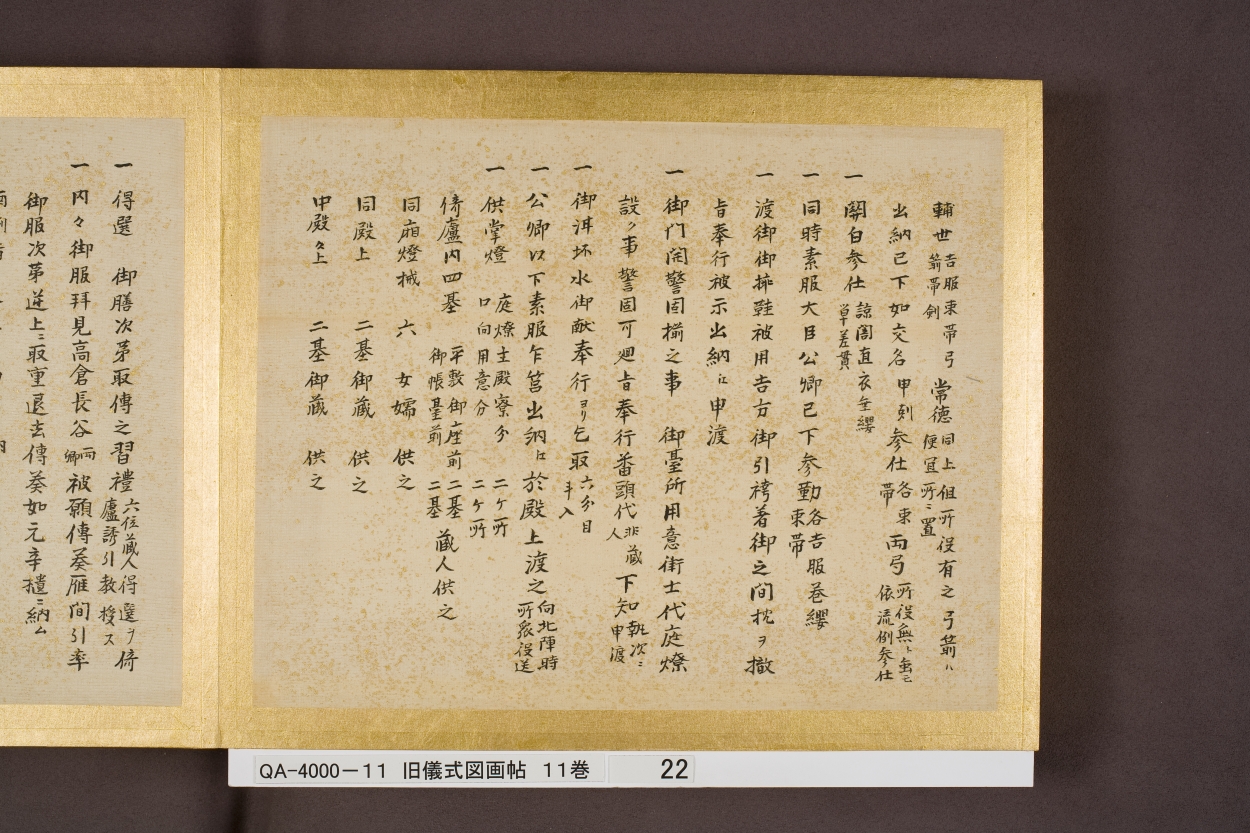 輔世 吉服束帯弓箭帯剣 常徳 同上 但所役有之弓箭ハ便宜所ニ置
出納已下如交名 申剋参仕 各束帯 両弓 所役無之 依流例参仕
一 関白参仕 諒闇直衣無纓 草差貫
一 同時素服大臣公卿已下参勤 各吉服巻纓束帯
一 渡御御挿鞋被用吉方御引袴着御之間枕ヲ撤
旨奉行被示出納江申渡
一 御门閇警固揃之事 御臺所用意衛士代庭燎
設ク事警固可廻旨奉行番頭代 非蔵人 下知 執次ニ申渡
一 御洱坏水御献奉行ヨリ乞取 六分目斗入
一 公卿以下素服乍筥出納江於殿上渡之 向北陣時所衆役送
一 供掌燈 庭燎主殿寮分 二ケ所 口向用意分 二ケ所
倚廬内四基 平敷御座前 二基 御帳臺前 二基 蔵人供之
同廂燈械 六 女嬬 供之
同殿上 二基御蔵 供之
中殿々上 二基御蔵 供之
一 得選 御膳次第取傳之習禮 六位蔵人得選ヲ倚廬誘引教授ス
一 内々御服拜見高倉長谷 両卿 被願傳奏雁間引率
御服次第逆上ニ取重退去傳奏如元辛櫃ニ納ム
QA-4000-11 旧儀式図画帖 11巻 22